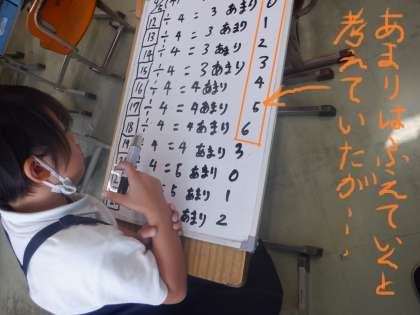 12 ÷ 4 = 3 あまり 0
13 ÷ 4 = 3 あまり 1
14 ÷ 4 = 3 あまり 2
15 ÷ 4 = 3 あまり 3
16 ÷ 4 = 4 あまり 4
17 ÷ 4 = 4 あまり 5
18 ÷ 4 = 4 あまり 6
19 ÷ 4 = 4 あまり 3
÷ 4 = 5 あまり 0
= 5 あまり 1
あまり 2
あまりはふえていくと
考えていたが…